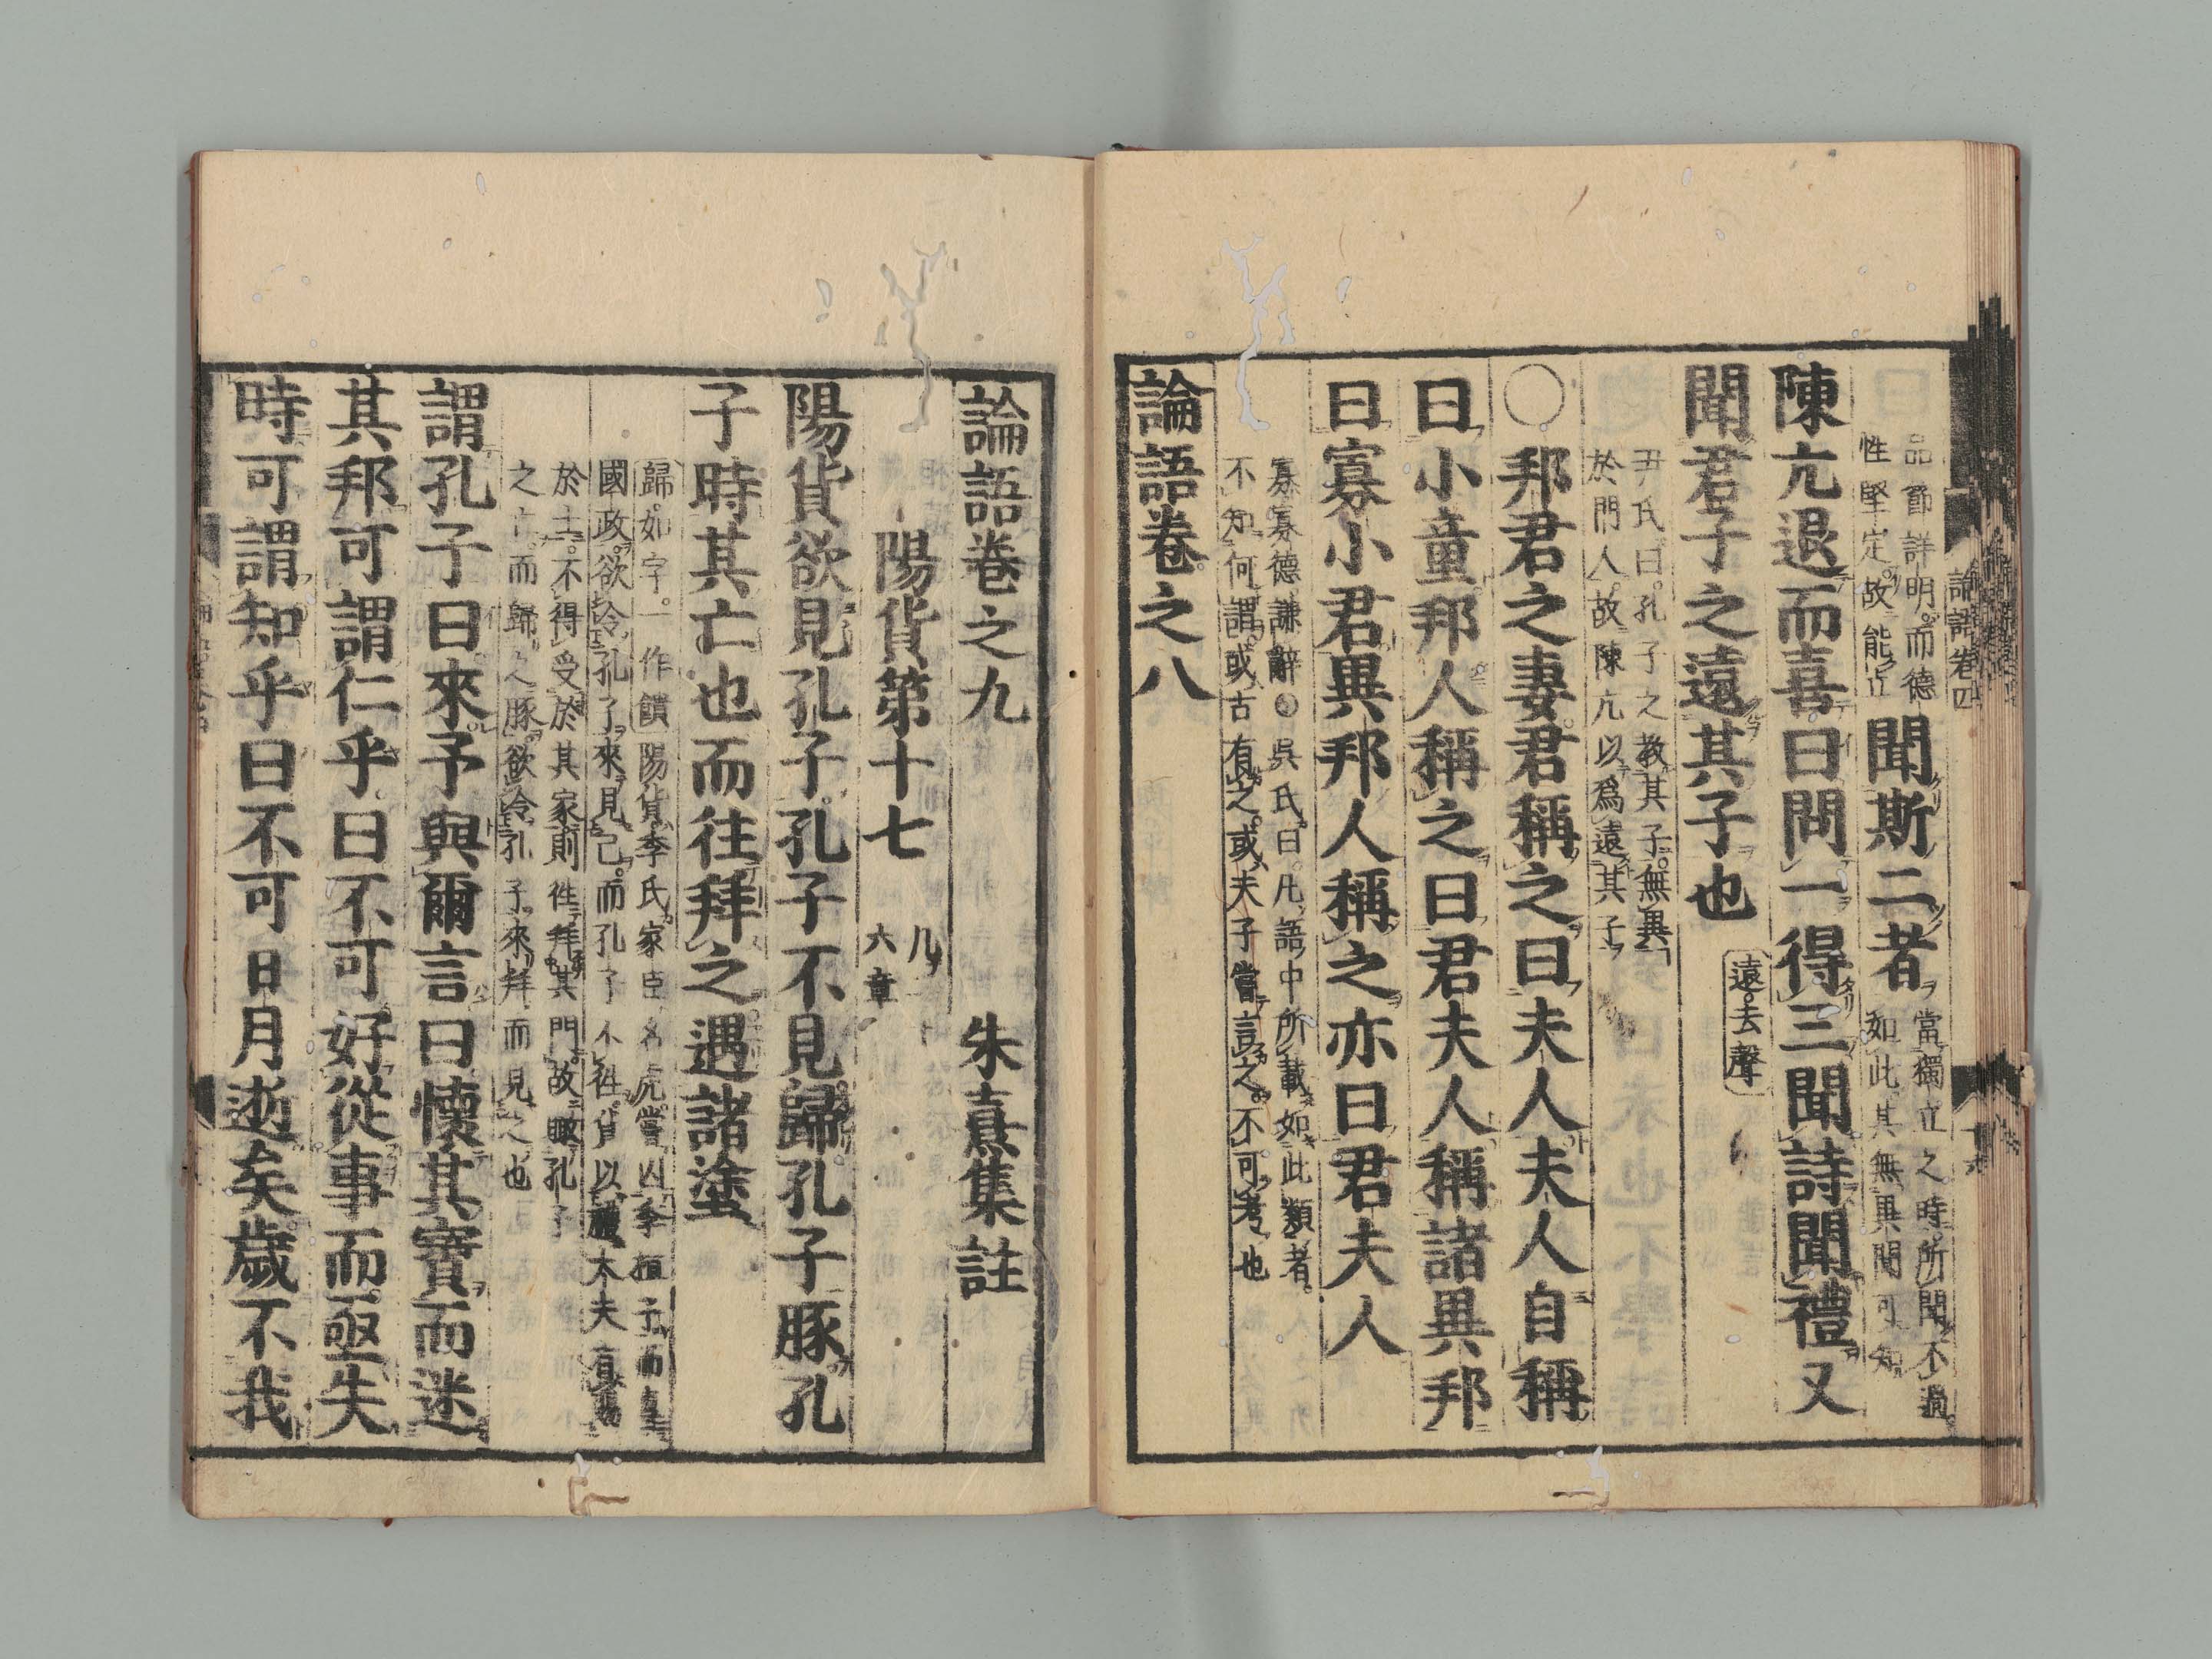 論語卷四
品節詳明而德
性堅定故能立
聞斯二者
當獨立之時所聞不過
如此其無異聞可知
陳亢退而喜曰問一得三聞詩聞禮又
聞君子之遠其子也
遠去聲
尹氏曰孔子之教其子無異
於門人故陳亢以爲遠其子
○邦君之妻君稱之曰夫人夫人自稱
曰小童邦人稱之曰君夫人稱諸異邦
曰寡小君異邦人稱之亦曰君夫人
寡寡德謙辭○吳氏曰凡語中所載如此類者
不知何謂或古有之或夫子嘗言之不可考也
論語卷之八
論語卷之九 朱熹集註
陽貨第十七
凡
六章
陽貨欲見孔子孔子不見歸孔子豚孔
子時其亡也而往拜之遇諸塗
歸如字一作饋陽貨季氏家臣名虎嘗囚季桓子而專
國政欲令孔子來見己而孔子不往貨以禮大夫有賜
於士不得受於其家則往拜其門故瞰孔子
之亡而歸之豚欲令孔子來拜而見之也
謂孔子曰來予與爾言曰懷其寶而迷
其邦可謂仁乎曰不可好從事而亟失
時可謂知乎曰不可日月逝矣歲不我